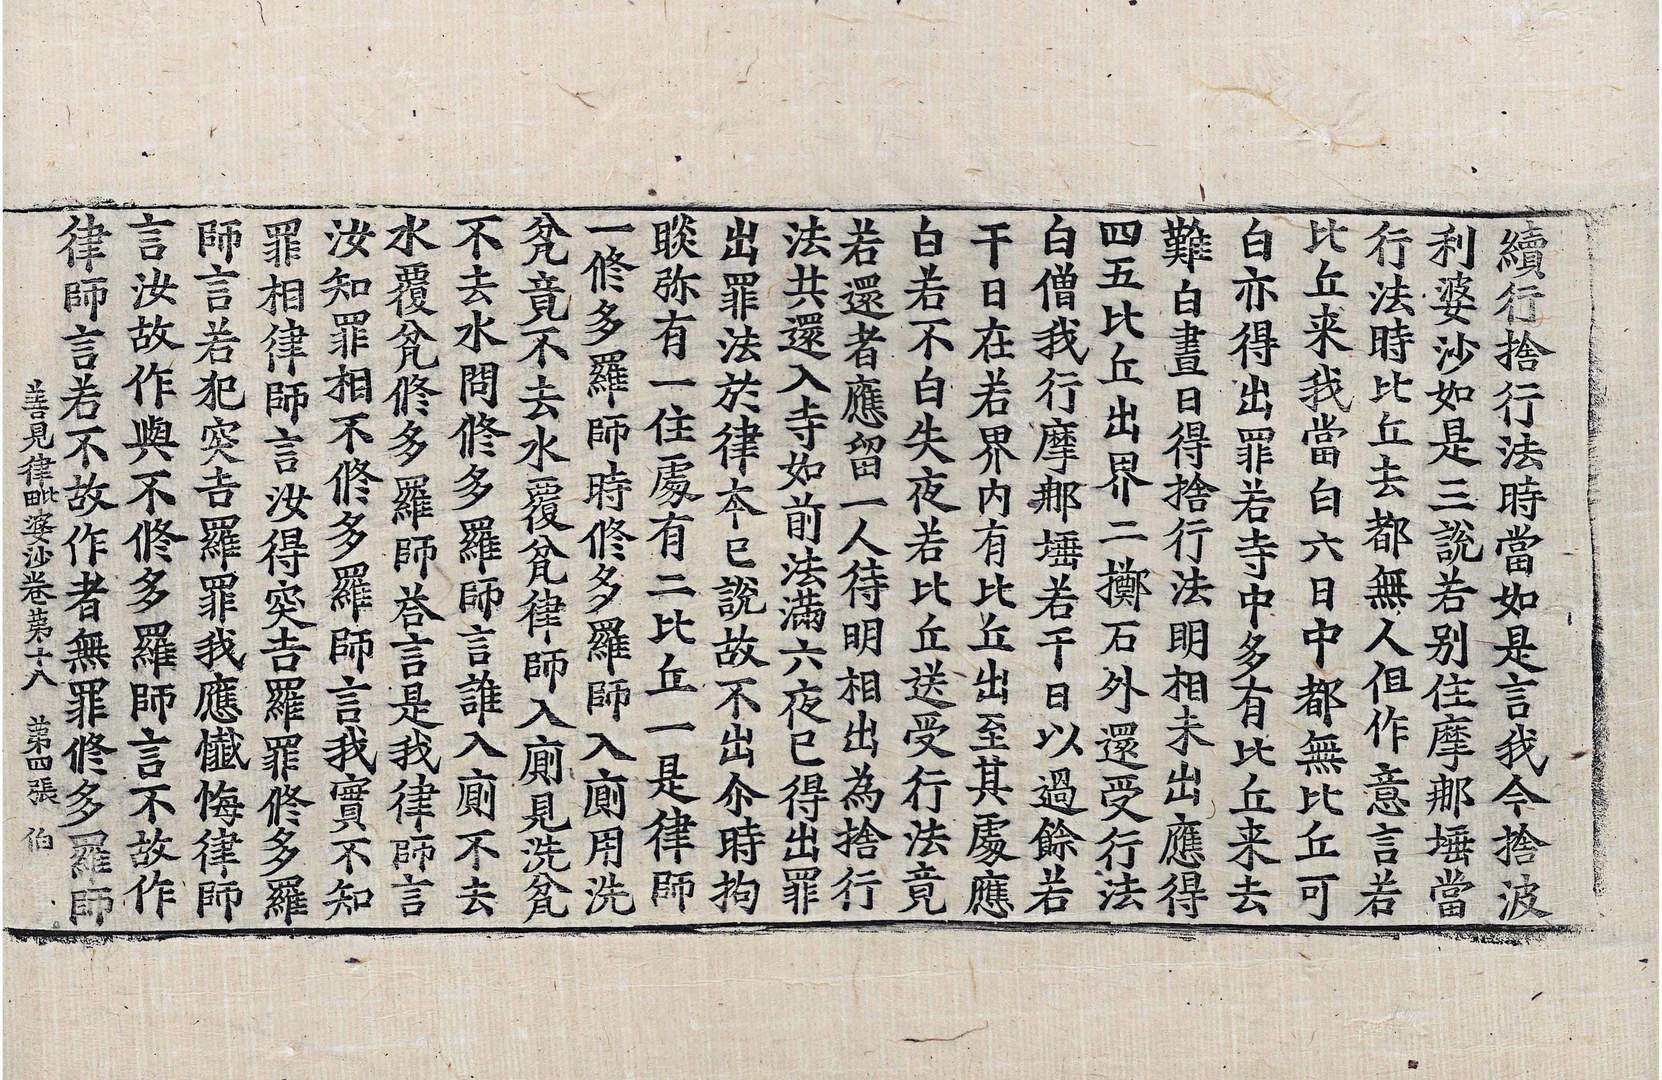 續行捨行法時當如是言我今捨波
利婆沙如是三說若別住摩那埵當
行法時比丘去都無人但作意言若
比丘来我當白六日中都無比丘可
白亦得出罪若寺中多有比丘来去
難白晝日得捨行法明相未出應得
四五比丘出界二擲石外還受行法
白僧我行摩那埵若干日以過餘若
干日在若界內有比丘出至其處應
白若不白失夜若比丘送受行法竟
若還者應留一人待明相出為捨行
法共還入寺如前法滿六夜已得出罪
出罪法於律本已說故不出尒時拘
睒弥有一住處有二比丘一是律師
一修多羅師時修多羅師入廁用洗
瓫竟不去水覆瓫律師入廁見洗瓫
不去水問修多羅師言誰入廁不去
水覆瓫修多羅師荅言是我律師言
汝知罪相不修多羅師言我實不知
罪相律師言汝得突吉羅罪修多羅
師言若犯突吉羅罪我應懺悔律師
言汝故作與不修多羅師言不故作
律師言若不故作者無罪修多羅師
善見律毗婆沙卷第十八　第四張　伯